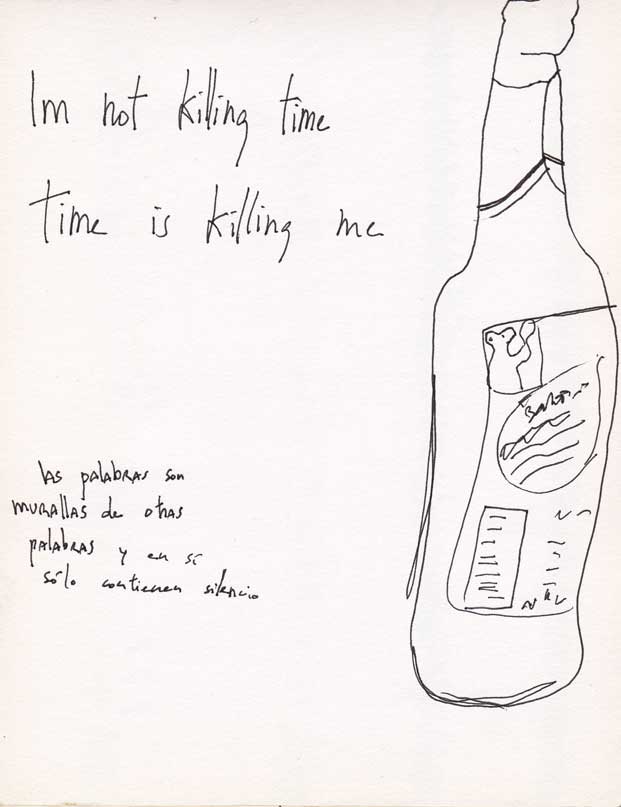 Im not killing time
time is killing me
las palabras son
murallas de otras
palabras y en sí
sólo contienen silencio